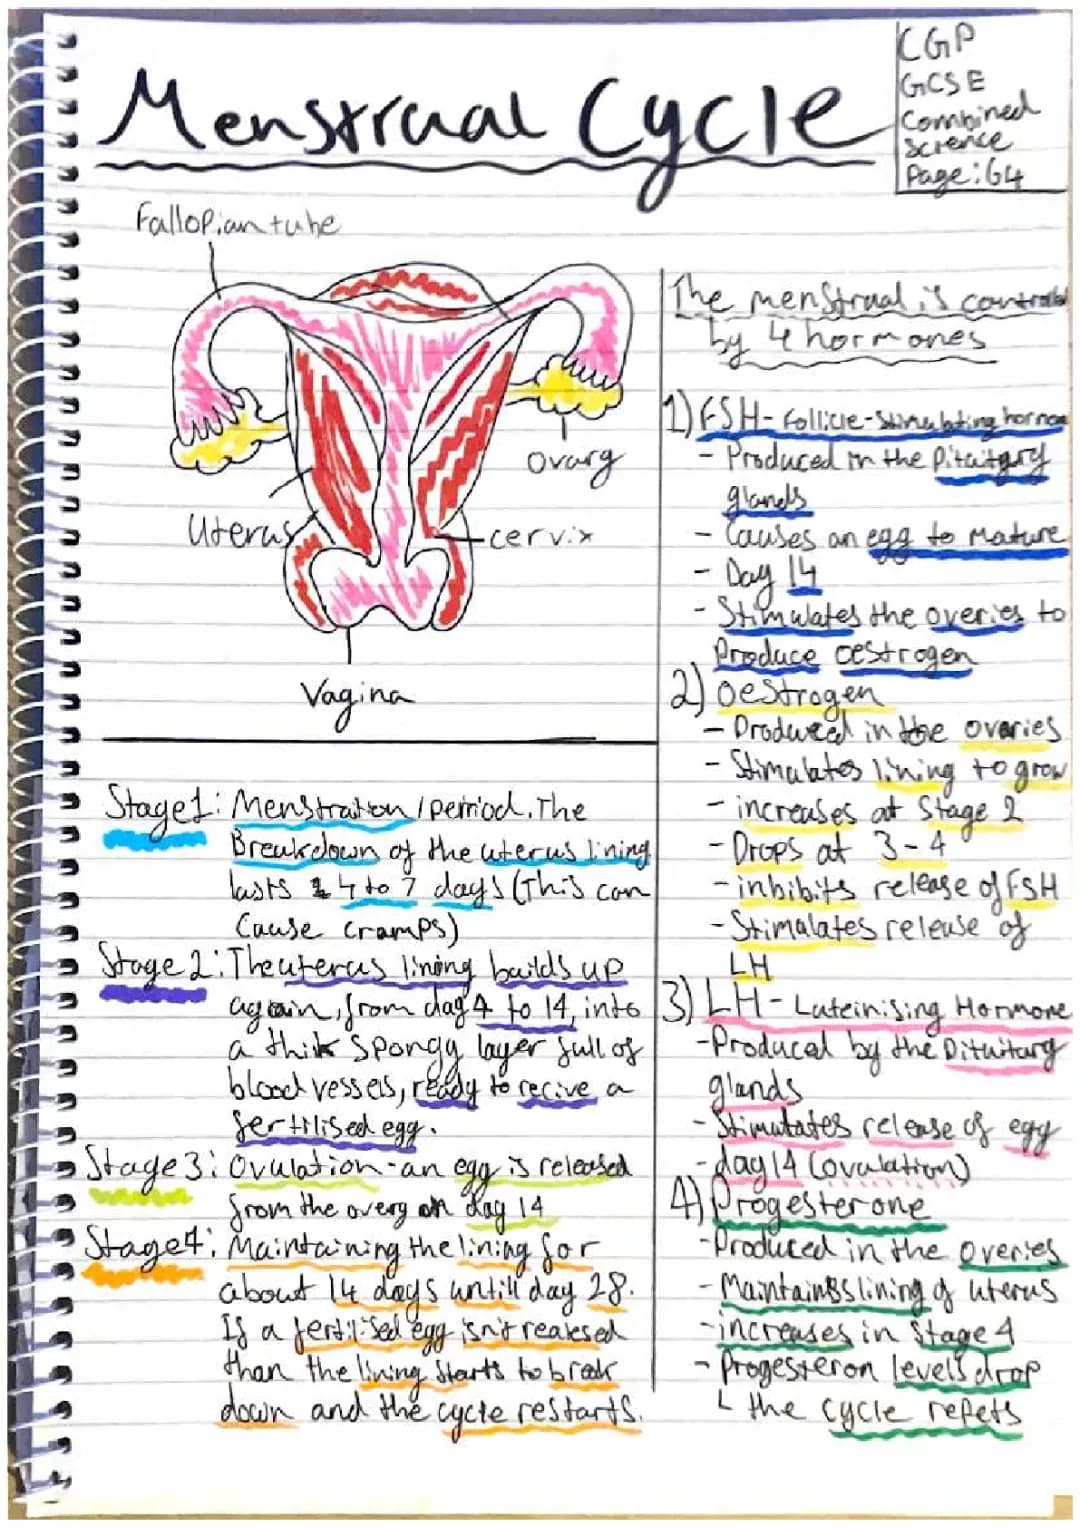 Menstrual Cycle
CGP
GCSE
Combined
Science
Page: 64
Fallopian tube
Ovary
Uterus
cervix
Vagina
Stage1: Menstration / period. The
Breakdown of the uterus lining
lasts 4 to 7 days (This can
Cause cramps)
Stage 2: The uterus lining builds up
again, from day 4 to 14, into
a thik spongy layer full of
blood vessels, ready to recive a
fertilised egg.
Stage 3: Ovulation - an egg is released
from the overy on day 14
Stage4: Maintaining the lining for
about 14 days untill day 28.
If a fertilised egg isn't realesed
than the lining starts to break
down and the cycle restarts.
The menstraal is controlled
by 4 hormones
1) FSH - Follicle-Stimulating hormone
- Produced in the Pituitary
glands
- Causes an egg to Mature
- Day 14
- Stimulates the overies to
Produce oestrogen
2) Oestrogen
- Produced in the ovaries
- Stimulates lining to grow
- increases at Stage 2
- Drops at 3-4
- inhibits release of FSH
- Stimalates release of
LH
3) LH - Luteinising Hormone
- Produced by the Pituitary
glands
- Stimutates release of egg
- day 14 (ovulation)
4) Progesterone
- Produced in the overies
- Maintains lining of uterus
- increases in Stage 4
- Progesteron levels drop
└ the cycle repets